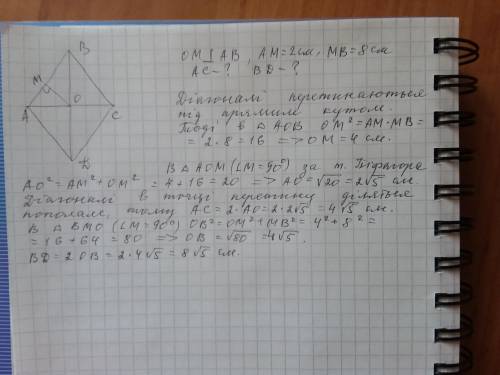 B
M
A
O
C
D
OM ⊥ AB, AM=2см, MB=8см
AC-? BD-?
Діагоналі перетинаються
під прямим кутом.
Тоді в △ AOB OM²=AM·MB=
=2·8=16 => OM=4 см.
В △ AOM (∠M=90°) за т. Піфагора
AO²=AM²+OM²=4+16=20 => AO=√20=2√5 см.
Діагоналі в точці перетину діляться
пополам, тому AC=2·AO=2·2√5=4√5 см.
В △ BMO (∠M=90°) OB²=OM²+MB²=4²+8²=
=16+64=80 => OB=√80=4√5.
BD=2OB=2·4√5=8√5 см.